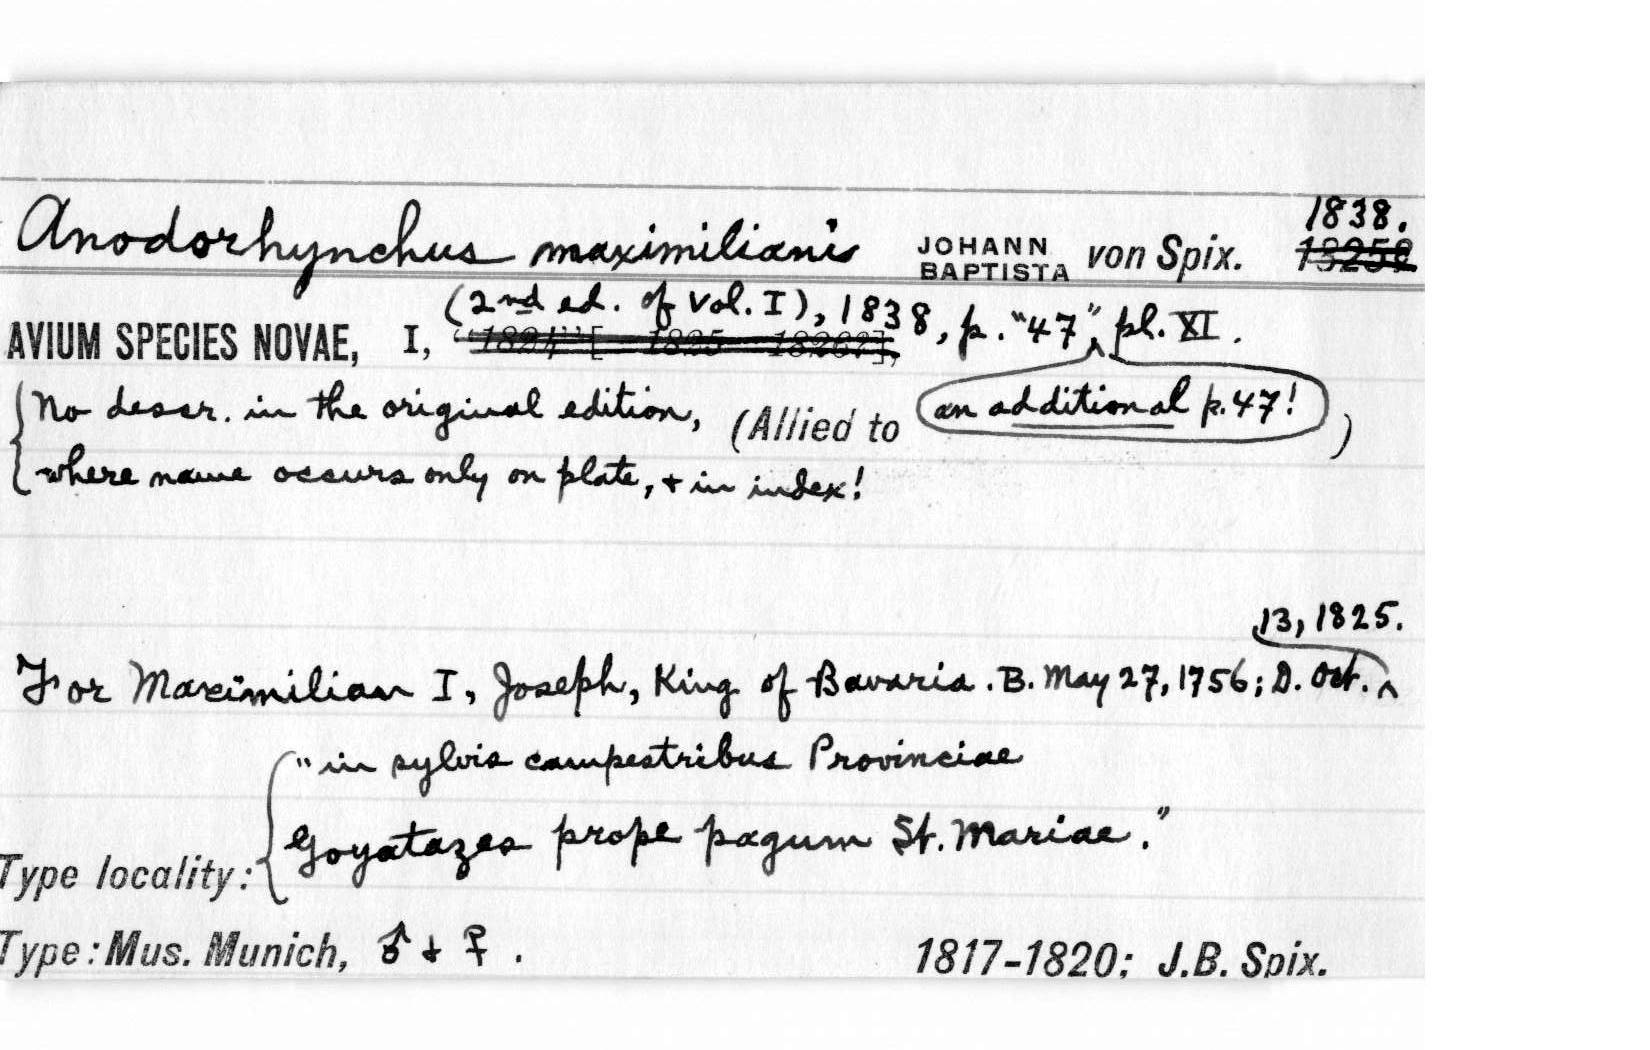 Anodorhynchus maximiliani JOHANN BAPTISTA von Spix. 1838.
1825?
(2nd ed. of Vol. I), 1838, p. "47", pl. XI.
AVIUM SPECIES NOVAE, I, "1824" [ 1825 1826?],
an additional p. 47!
{No descr. in the original edition, (Allied to )
where name occurs only on plate, + in index!
13, 1825.
For Maximilian I, Joseph, King of Bavaria. B. May 27, 1756; D. Oct. ^
"in sylvis campestribus Provinciae
Goyatazes prope pagum St. Mariae."
Type locality:
Type: Mus. Munich, ♂ + ♀. 1817-1820; J.B. Spix.